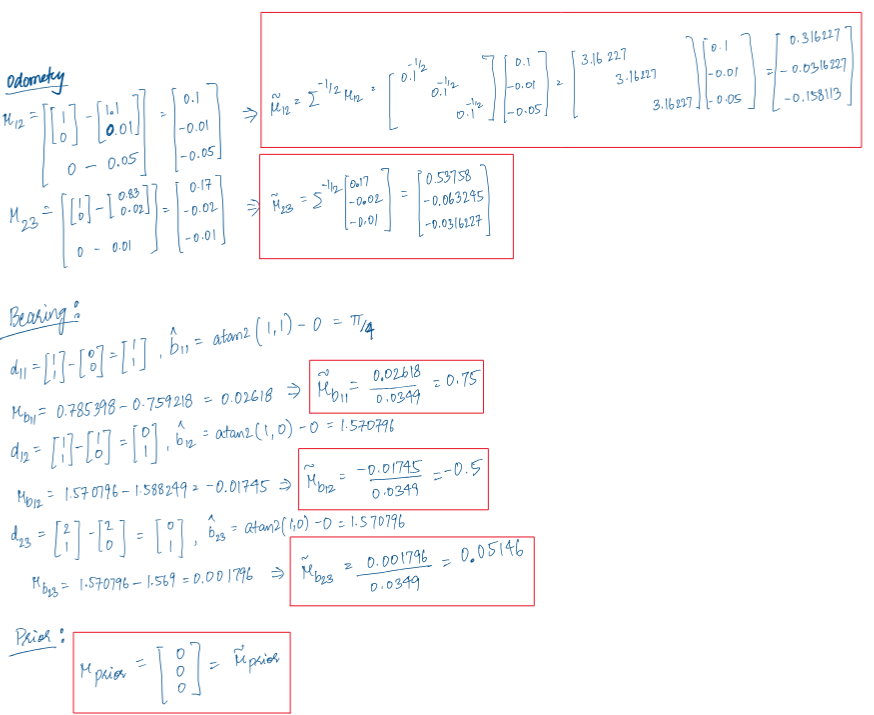 Odometry
μ₁₂ = [[1 0] - [1.1 0.01] 0 - 0.05] = [0.1 -0.01 -0.05] ⇒ μ̃₁₂ = Σ^(-1/2) μ₁₂ = [0.1^(-1/2) 0.1^(-1/2) 0.1^(-1/2)] [0.1 -0.01 -0.05] = [3.16 227 3.16227 3.16227] [0.1 -0.01 -0.05] = [0.316227 -0.0316227 -0.158113]
μ₂₃ = [[1 0] - [0.83 0.02] 0 - 0.01] = [0.17 -0.02 -0.01] ⇒ μ̃₂₃ = Σ^(-1/2) [0.17 -0.02 -0.01] = [0.53758 -0.063245 -0.0316227]
Bearing :
d₁₁ = [1 1] - [0 0] = [1 1] , b̂₁₁ = atan2(1,1) - 0 = π/4
μ_b₁₁ = 0.785398 - 0.759218 = 0.02618 ⇒ μ̃_b₁₁ = 0.02618 / 0.0349 = 0.75
d₁₂ = [1 1] - [1 0] = [0 1] , b̂₁₂ = atan2(1,0) - 0 = 1.570796
μ_b₁₂ = 1.570796 - 1.588249 = -0.01745 ⇒ μ̃_b₁₂ = -0.01745 / 0.0349 = -0.5
d₂₃ = [2 1] - [2 0] = [0 1] , b̂₂₃ = atan2(1,0) - 0 = 1.570796
μ_b₂₃ = 1.570796 - 1.569 = 0.001796 ⇒ μ̃_b₂₃ = 0.001796 / 0.0349 = 0.05146
Prior :
μ_prior = [0 0 0] = μ̃_prior